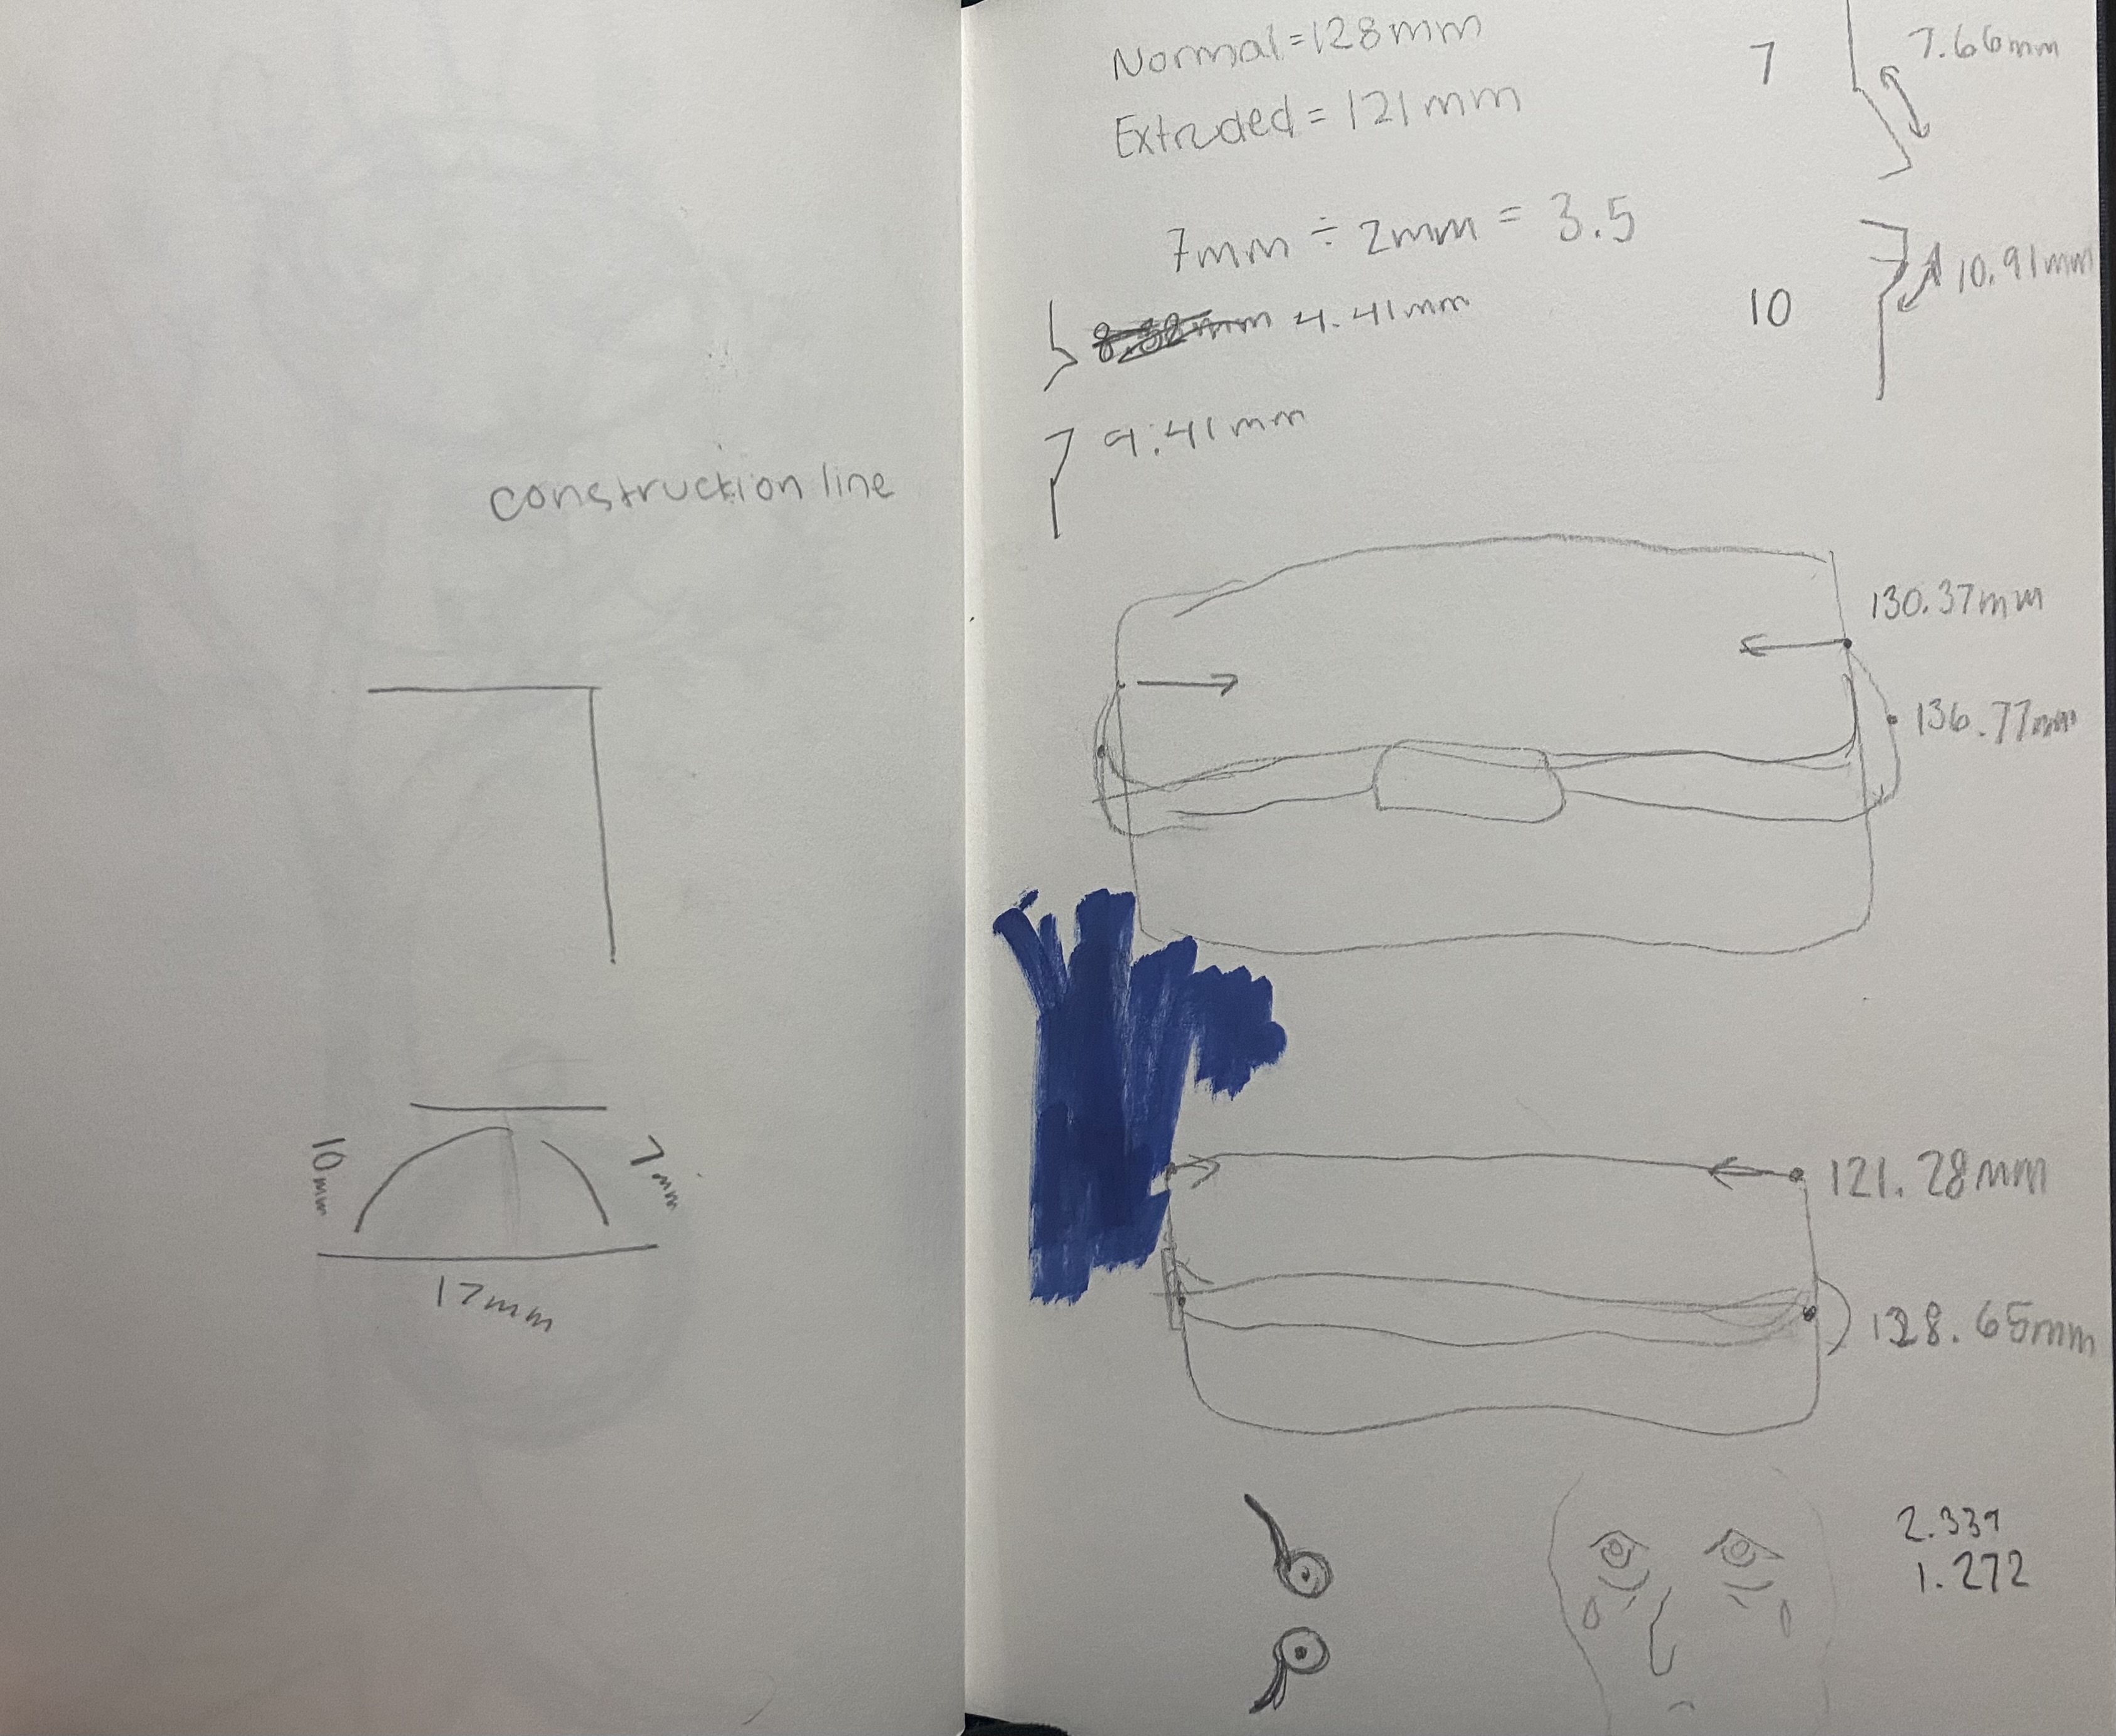 construction line
10mm
7mm
17mm
Normal=128mm
Extruded=121mm
7mm ÷ 2mm = 3.5
4.41mm
9.41mm
7
7.66mm
10
10.91mm
130.37mm
136.77mm
121.28mm
128.65mm
2.339
1.272